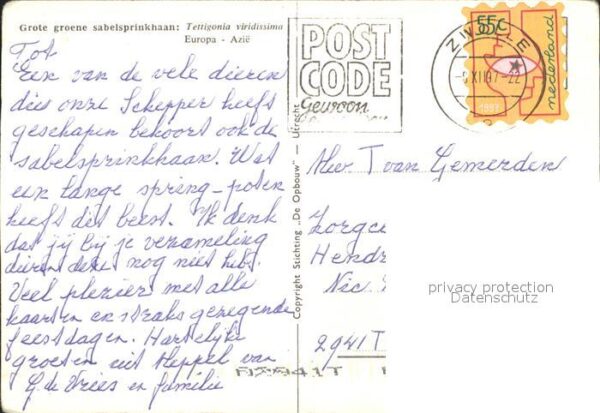 Grote groene sabelsprinkhaan: Tettigonia viridissima
Europa - Azië
Tot
Een van de vele dieren
dies onze Schepper heeft
geschapen behoort ook de
sabelsprinkhaan. Wat
een lange spring-poten
heeft dit beest. Ik denk
dat jij bij je verzameling
dieren deze nog niet hebt.
Veel plezier met alle
kaarten en straks gezegende
feestdagen. Hartelijke
groeten uit Meppel van
G. de Vries en familie
Copyright Stichting „De Opbouw" — Utrecht
POST
CODE
gewoon
ZWOLLE
XII 97-22
55c
nederland
1997
T van Gemerden
Zorgce
Hendr
Nic.
2941T
privacy protection
Datenschutz
A2941T